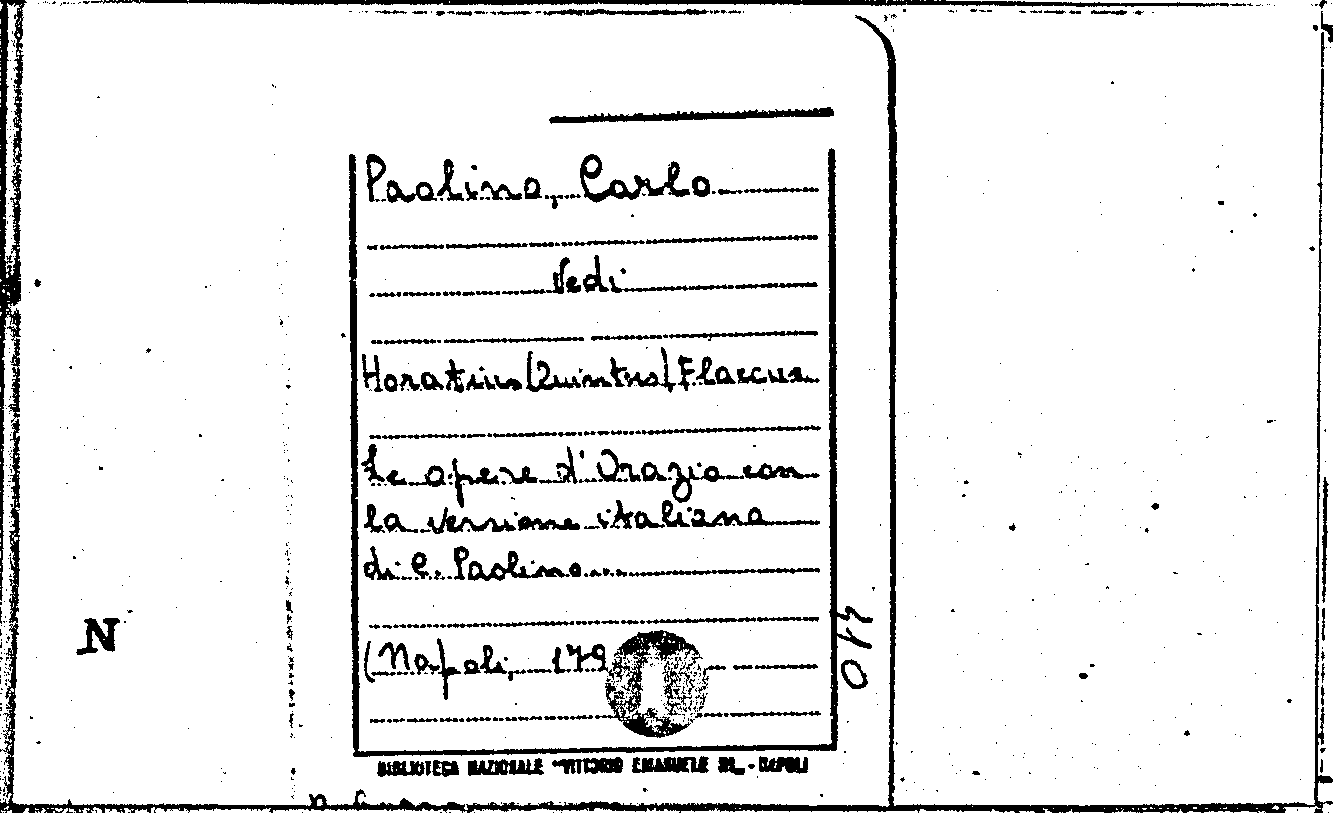 Paolino, Carlo
Vedi
Horatius (Quintus) Flaccus
Le opere d'Orazio con
la versione italiana
di C. Paolino...
(Napoli, 179
BIBLIOTECA NAZIONALE "VITTORIO EMANUELE III„ - NAPOLI
N
410